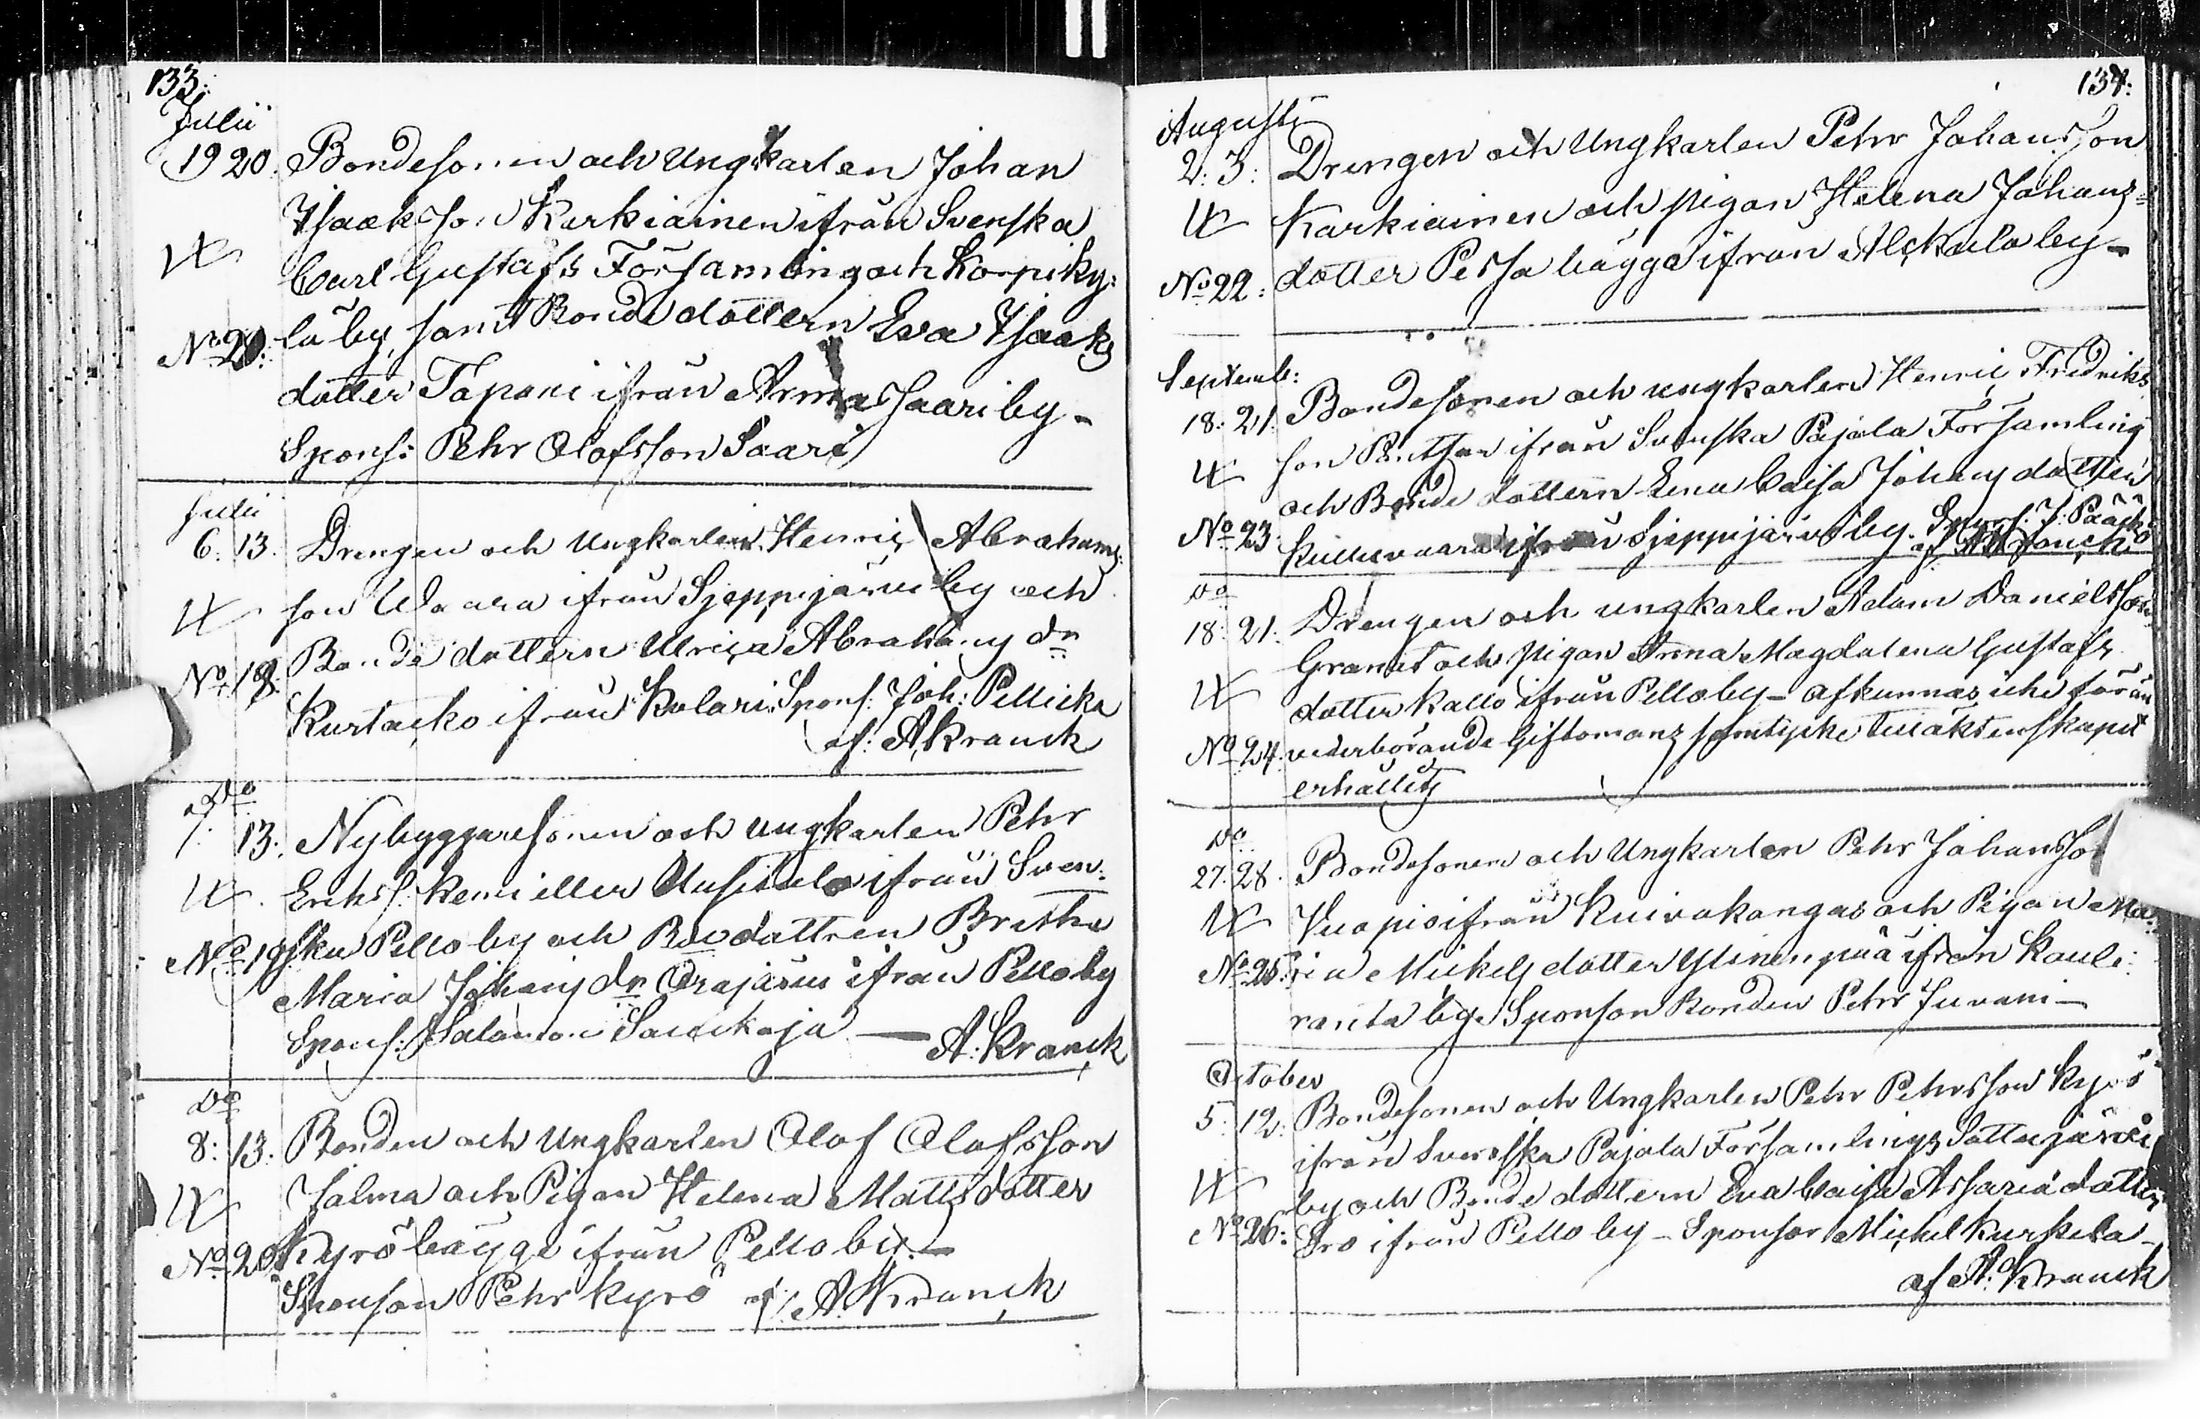 133:
Julii
19 20. Bondesonen och Ungkarlen Johan
Isaaksson Karkiainen ifrån Svenska
Carl Gustafs Församling och Korpiky:
No 20: la by, samt Bonde dottern Eva Isaaks
dotter Tapani ifrån Armassaari by -
Spons: Pehr Olofsson Saari
Julii
6. 13. Drengen och Ungkarlen Henric Abrahams
son Waara ifrån Sjeppijärvi by och
No 18. Bonde dottern Ulrica Abrahams dr
Kurtacko ifrån Kolari Spons: Joh: Pellicka
af: A Kranck
Do
7. 13. Nybyggaresonen och Ungkarlen Pehr
Erikss. Kemi eller ifrån Sven:
No 19 ska Pello by och dottren Britha
Maria Johans dr Orajärvi ifrån Pello by
Spons: Salamon A: Kranck
Do
8: 13. Bonden och Ungkarlen Olof Olofsson
Jolma och Pigan Helena Matts dotter
No 20 Kyrö bägge ifrån Pello by. -
Sponson Pehr Kyrö af: A Kranck
134:
Augusti
2: 3: Drengen och Ungkarlen Pehr Johansson
Karkiainen och pigan Helena Johans=
No 22: dotter Pessa bägge ifrån Alckula by -
Septemb:
18: 21. Bondesonen och ungkarlen Henric Fredriks
son ifrån Svenska Pajala Församling
och Bonde dottern Lena Caisa Johans dotter
No 23 Kuckuvaara ifrån Sjeppijärvi by. Spons: J: Pääckö
af A Kranck
Do
18: 21. Drengen och ungkarlen Adam Danielsson
Granit och pigan Anna Magdalena Gustafs
dotter Kallo ifrån Pello by - afkunnas icke förän
No 24. vederbörande Giftomans samtycke till äktenskapet
erhållits
Do
27. 28. Bondesonen och Ungkarlen Pehr Johansso
Vuopio ifrån Kuivakangas och Pigan Ma:
No 25: ria Mickels dotter Ylinenpää ifrån Kauli:
ranta by. Sponson Bonden Pehr Juvani -
October
5. 12. Bondesonen och Ungkarlen Pehr Pehrsson Kyrö
ifrån Svenska Pajala Församlings Sattajärvi
by och Bonde dottern Eva Caisa Assaria dotter
No 26: Iro ifrån Pello by - Sponsor Michel Kurkela -
af A: Kranck